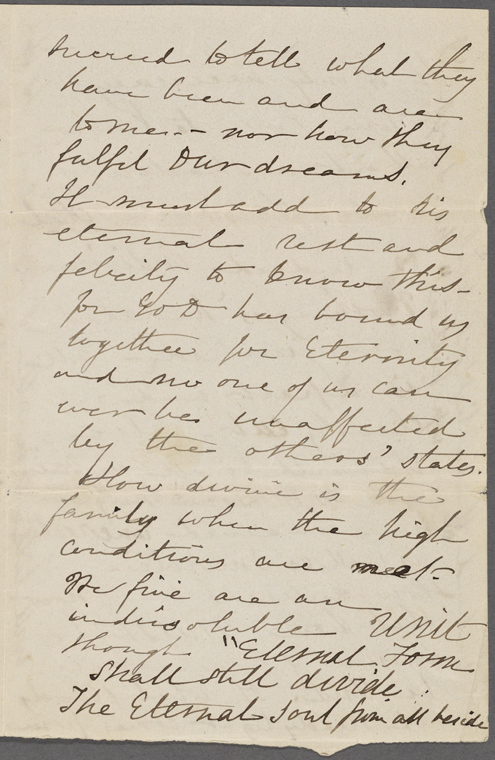 sacred to tell what they
have been and are
to me - nor how they
fulfil our dreams.
It must add to his
eternal rest and
felicity to know this -
for GOD has bound us
together for Eternity
and no one of us can
ever be unaffected
by the others' states.
How divine is the
family when the high
conditions are met -
We five are an
indissoluble Unit
though "Eternal Form
Shall still divide
The Eternal Soul from all beside